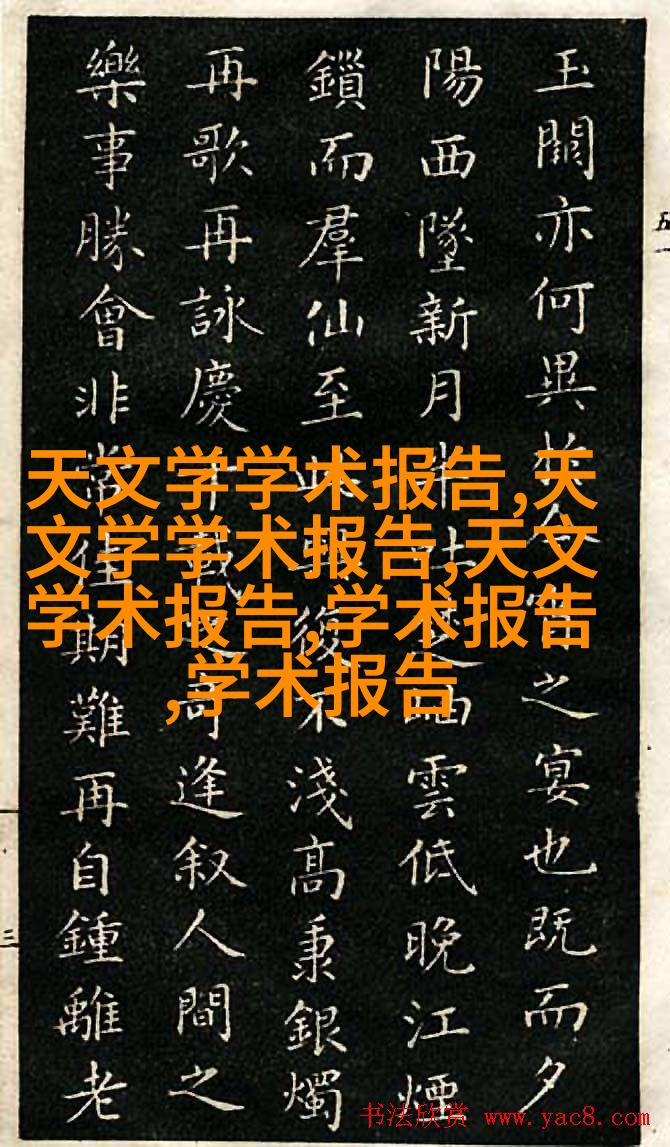 玉闕亦何異茲今宵之宴也既而夕
陽西墜新月半楚岫雲低晚江煙
鎖而羣仙至此興復不淺高秉銀燭
再歌再詠慶千載之奇逢叙人間之
樂事勝會非常佳期難再自鍾離老
天文学学术报告,天
文学学术报告,天文
学术报告,学术报告
,学术报告
五
三
书法欣赏 www.yac8.com